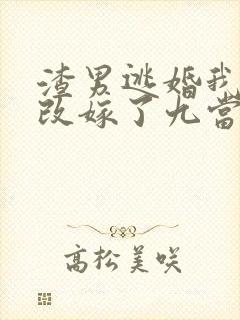 渣男逃婚我
改嫁了九當
高松美咲